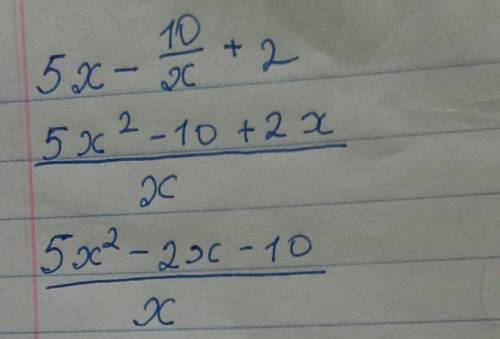 5x - 10/x + 2
(5x² - 10 + 2x)/x
(5x² - 2x - 10)/x